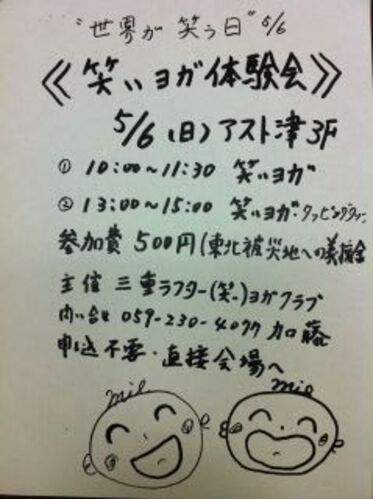 "世界が笑う日" 5/6
《笑いヨガ体験会》
5/6(日)アスト津3F
① 10:00~11:30 笑いヨガ
② 13:00~15:00 笑いヨガ・タッピングタッチ
参加費 500円(東北被災地への義援金
主催 三重ラフター(笑い)ヨガクラブ
問い合せ 059-230-4077 加藤
申込不要・直接会場へ
mie
mie